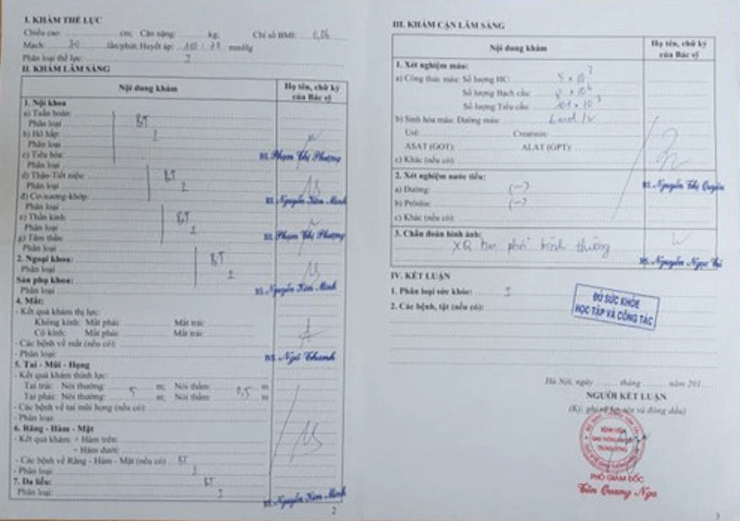 I. KHÁM THỂ LỰC
Chiều cao: cm; Cân nặng: kg; Chỉ số BMI:
Mạch: lần/phút; Huyết áp: mmHg
Phân loại thể lực:
II. KHÁM LÂM SÀNG
Nội dung khám
Họ tên, chữ ký của Bác sỹ
1. Nội khoa
a) Tuần hoàn:
Phân loại
BT
b) Hô hấp:
Phân loại
c) Tiêu hóa:
BS. Phạm Thị Phượng
Phân loại
d) Thận-Tiết niệu:
BT
Phân loại
đ) Cơ-xương-khớp:
BS. Nguyễn Kim Minh
Phân loại
e) Thần kinh:
BT
Phân loại
g) Tâm thần:
BS. Phạm Thị Phượng
Phân loại
2. Ngoại khoa:
BT
Phân loại
Sản phụ khoa:
BS. Nguyễn Kim Minh
Phân loại
4. Mắt:
- Kết quả khám thị lực:
Không kính: Mắt phải: Mắt trái:
Có kính: Mắt phải: Mắt trái:
- Các bệnh về mắt (nếu có):
BS. Ngô Thanh
- Phân loại:
5. Tai - Mũi - Họng
- Kết quả khám thính lực:
Tai trái: Nói thường: 5 m; Nói thầm: 0,5 m
Tai phải: Nói thường: m; Nói thầm: m
- Các bệnh về tai mũi họng (nếu có)
- Phân loại:
6. Răng - Hàm - Mặt
- Kết quả khám: + Hàm trên:
+ Hàm dưới:
- Các bệnh về Răng - Hàm - Mặt (nếu có) BT
- Phân loại:
7. Da liễu: BT
Phân loại:
BS. Nguyễn Kim Minh
2
III. KHÁM CẬN LÂM SÀNG
Nội dung khám
Họ tên, chữ ký của Bác sỹ
1. Xét nghiệm máu:
a) Công thức máu: Số lượng HC:
Số lượng Bạch cầu:
Số lượng Tiểu cầu:
b) Sinh hóa máu: Đường máu:
Urê: Creatinin:
ASAT (GOT): ALAT (GPT):
c) Khác (nếu có):
2. Xét nghiệm nước tiểu:
BS. Nguyễn Thị Quyên
a) Đường: (-)
b) Prôtêin: (-)
c) Khác (nếu có):
3. Chẩn đoán hình ảnh:
XQ tim phổi bình thường
BS. Nguyễn Ngọc
IV. KẾT LUẬN
1. Phân loại sức khỏe:
2. Các bệnh, tật (nếu có):
ĐỦ SỨC KHỎE
HỌC TẬP VÀ CÔNG TÁC
Hà Nội, ngày tháng năm 201
NGƯỜI KẾT LUẬN
(Ký, ghi rõ họ tên và đóng dấu)
BỆNH VIỆN
GIAO THÔNG VẬN TẢI
TRUNG ƯƠNG
PHÓ GIÁM ĐỐC
Quang Nga
3